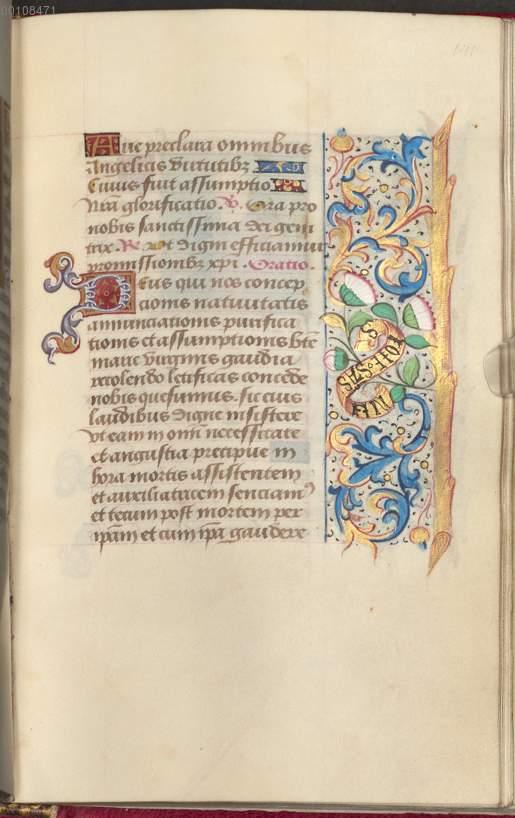 00108471
Aue preclara omnibus
Angelicis virtutibꝫ
Cuius fuit assumptio
Nr̃a glorificatio. V. Ora pro
nobis sanctissima dei geni
trix. R. Vt digni efficiamur
promissionibꝫ xpi. Oratio.
Deus qui nos concep
cionis natiuitatis
annunciationis purifica
tionis et assumptionis btẽ
marie virginis gaudia
recolendo letificas concede
nobis quesumus. sic eius
laudibus digne insistere
vt eam in om̃i necessitate
et angustia precipue in
hora mortis assistentem
et auxiliatricem senciam⁹
et tecum post mortem per
ip̃am et cum ip̃a gaudere